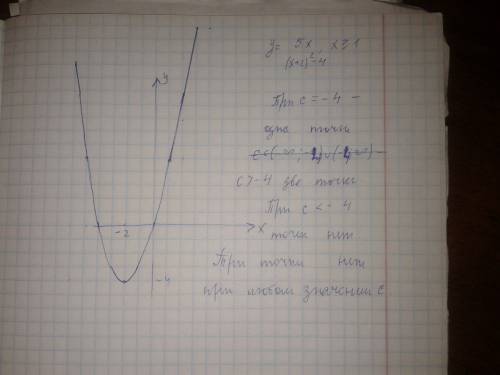 y= 5x, x≥1
(x+2)²-4
При c = -4 -
одна точка
c > -4 две точки
При c < -4
точек нет
При точки нет
при любом значении c
y
x
-2
-4